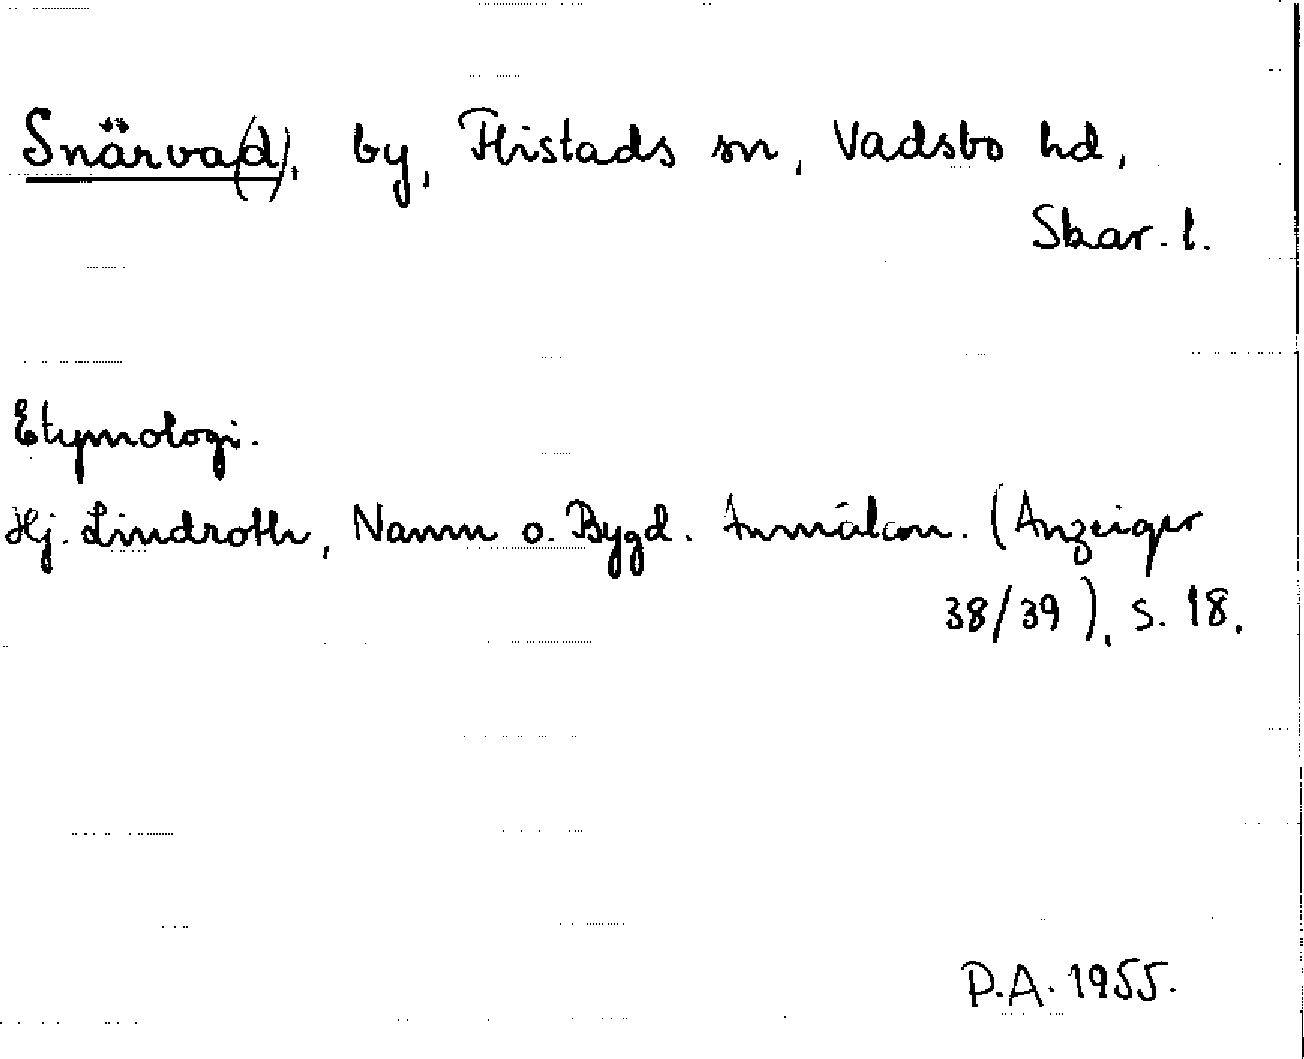 Snärva(d), by, Flistads sn, Vadsbo hd,
Skar. l.
Etymologi.
Hj. Lindroth, Namn o. Bygd. Anmälan. (Anzeiger
38/39), s. 18.
P.A. 1955.